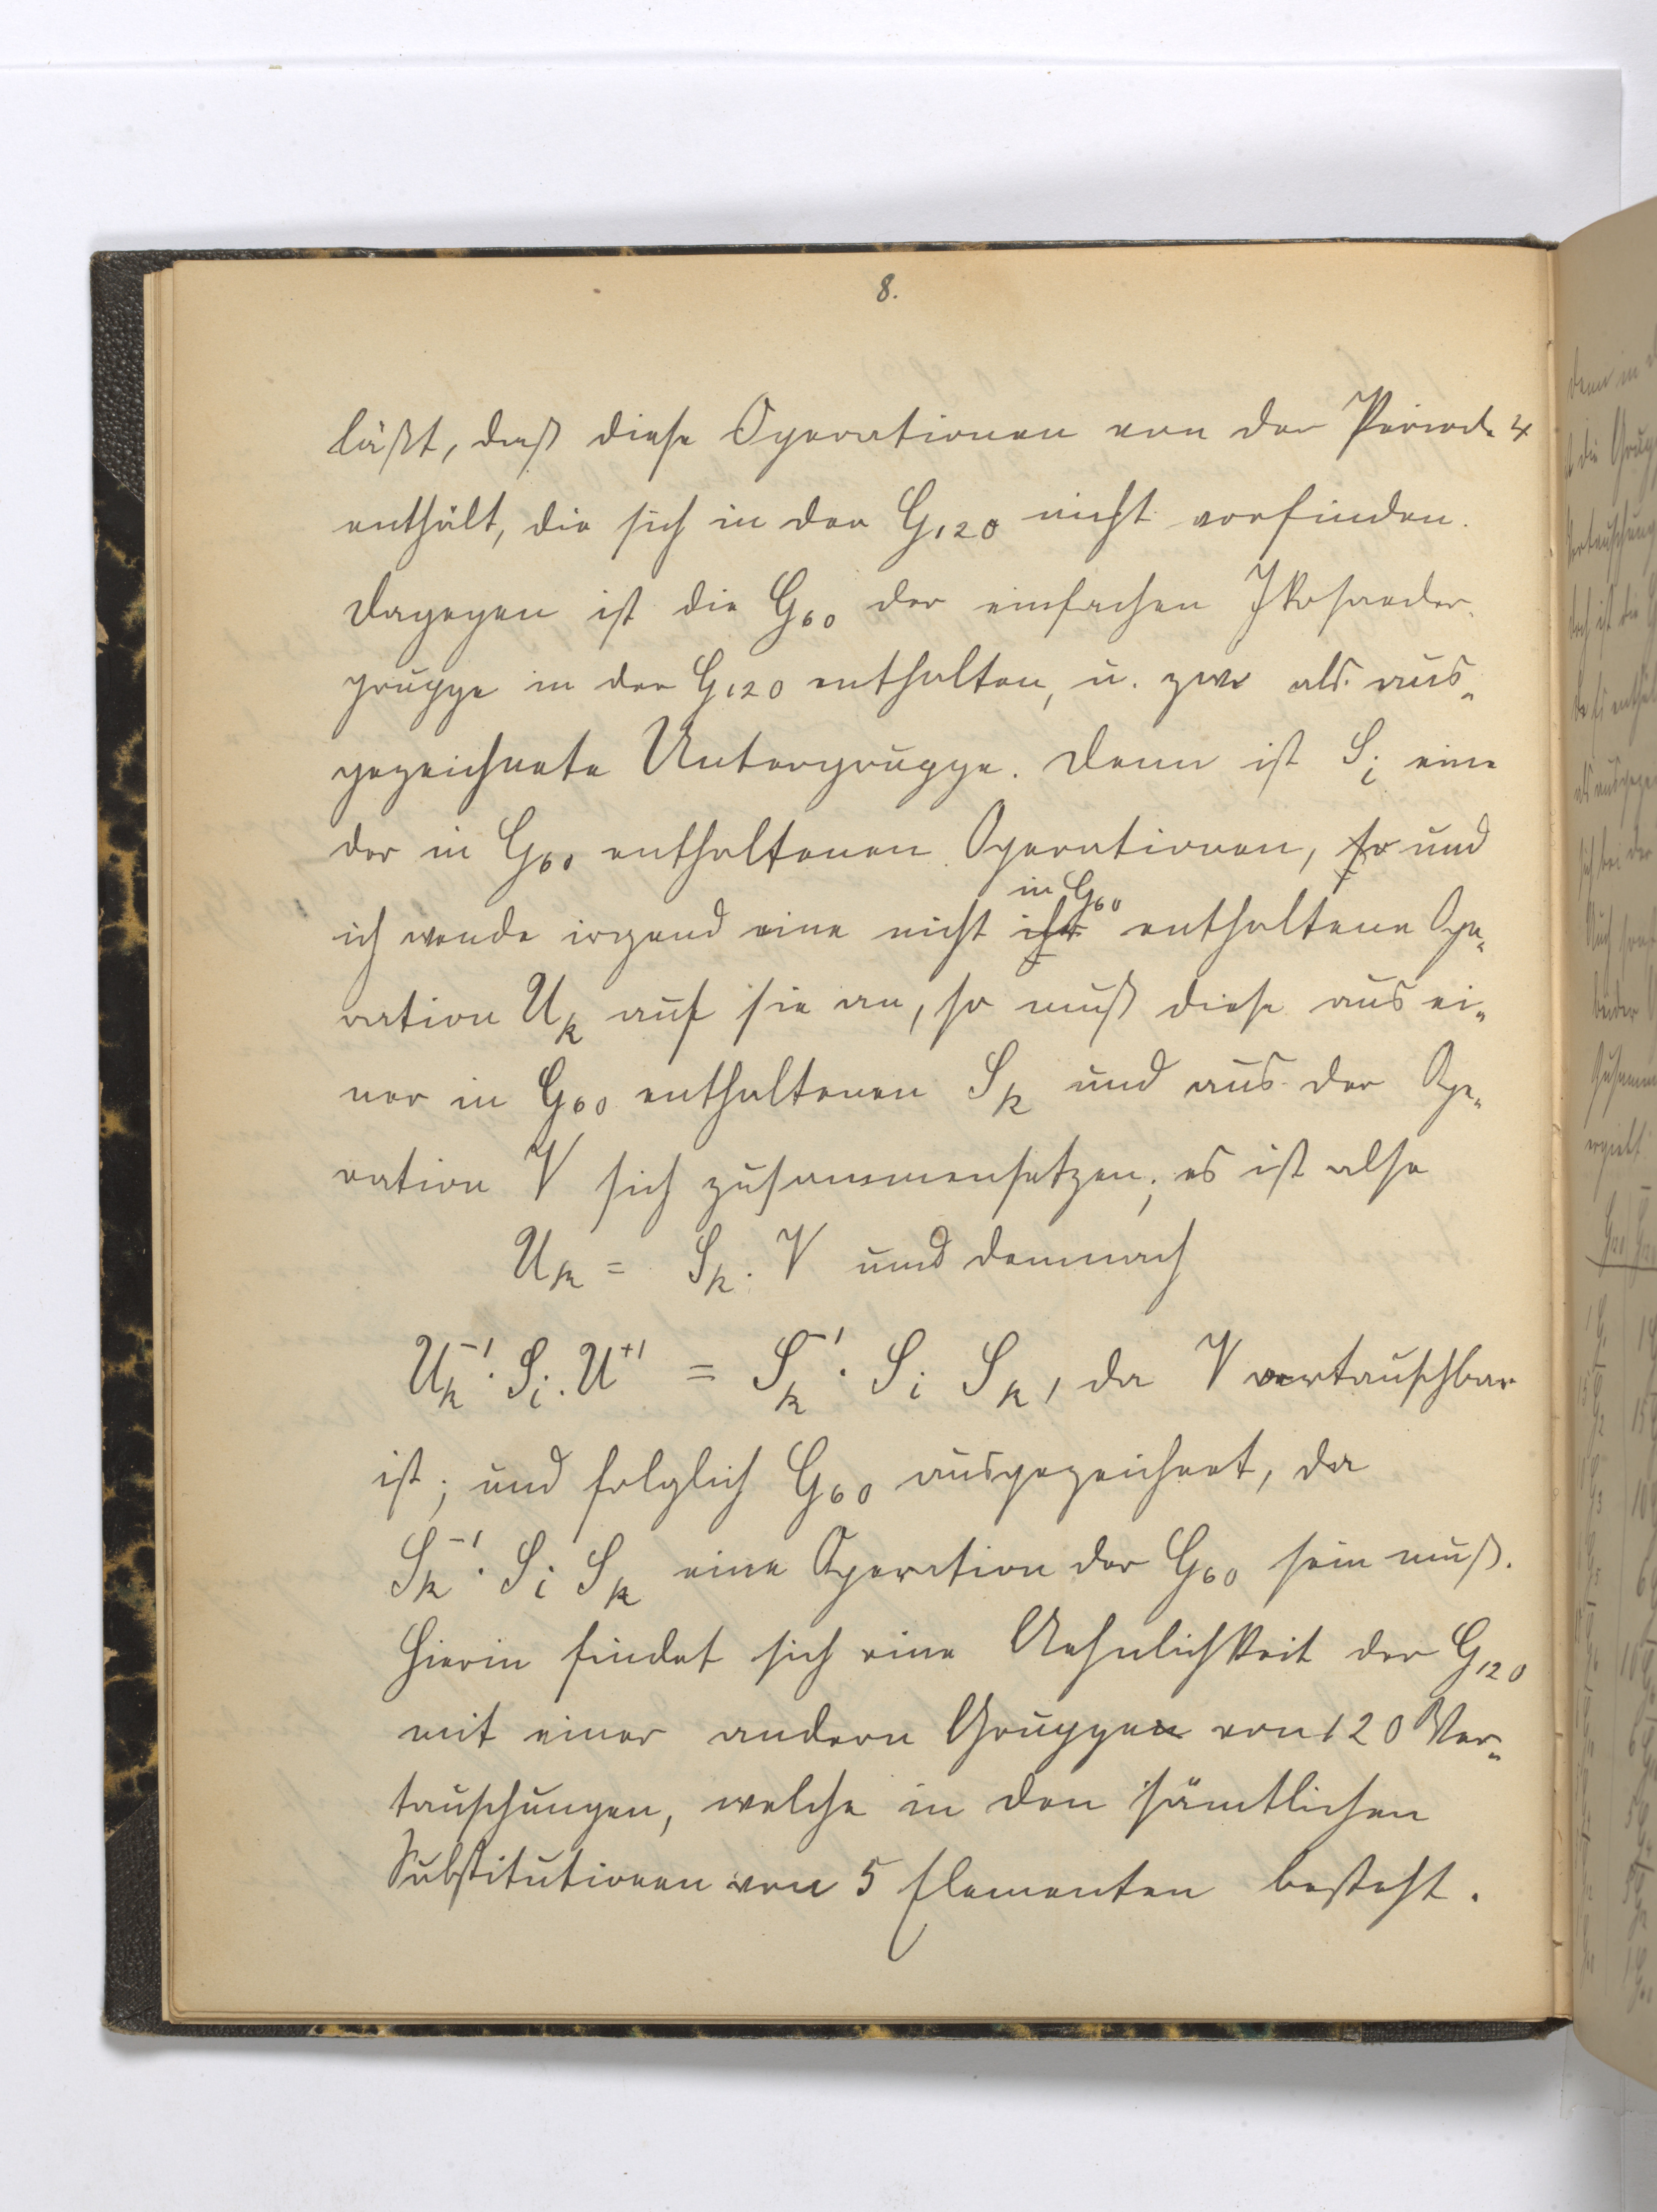 8.
läßt, daß diese Operationen von der Periode 4
enthält, die sich in der G₁₂₀ nicht vorfinden.
Dagegen ist die G₆₀ der einfachen Ikosaeder-
gruppe in der G₁₂₀ enthalten, u. zwr als aus-
gezeichnete Untergruppe. Denn ist Sᵢ eine
der in G₆₀ enthaltenen Operationen, so und
ich wende irgend eine nicht ihr in G₆₀ enthaltene Ope-
ration Uₖ auf sie an, so muß diese aus ei-
ner in G₆₀ enthaltenen Sₖ und aus der Ope-
ration V sich zusammensetzen; es ist also
Uₖ = Sₖ . V und demnach
Uₖ⁻¹ . Sᵢ . U⁺¹ = Sₖ⁻¹ . Sᵢ Sₖ, da V vertauschbar
ist; und folglich G₆₀ ausgezeichnet, da
Sₖ⁻¹ . Sᵢ Sₖ eine Operation der G₆₀ sein muß.
Hierin findet sich eine Aehnlichkeit der G₁₂₀
mit einer andern Gruppen von 120 Ver-
tauschungen, welche in den sämtlichen
Substitutionen von 5 Elementen besteht.